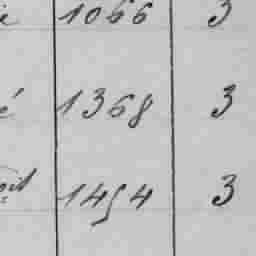 1066 3
é 1368 3
1454 3